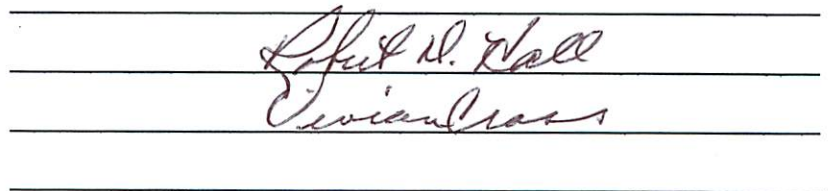 Robert D. Hall
Vivian Cross